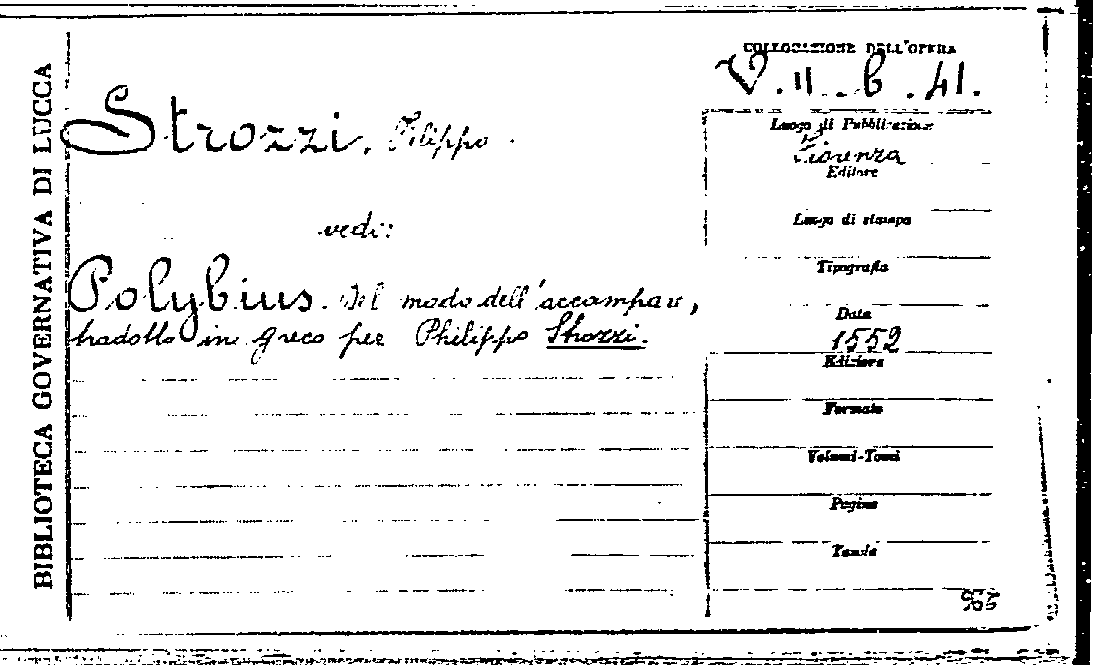 BIBLIOTECA GOVERNATIVA DI LUCCA
Strozzi, Filippo.
vedi:
Polybius. Del modo dell'accampare,
tradotto in greco per Philippo Strozzi.
COLLOCAZIONE DELL'OPERA
V. II. b. 41.
Luogo di Pubblicazione
Fiorenza
Editore
Luogo di stampa
Tipografia
Data
1552
Edizione
Formato
Volumi-Tomi
Pagine
Tavole